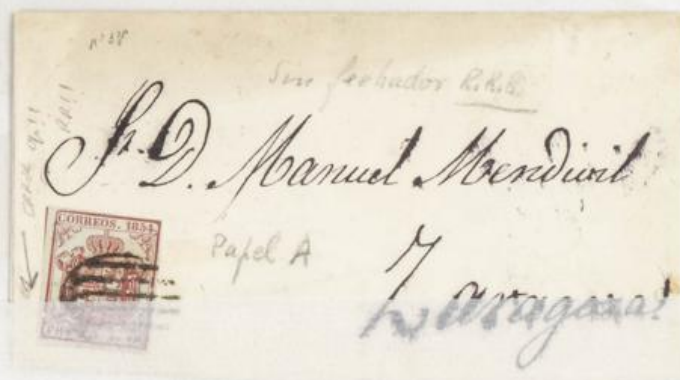 nº 48
Sin fechador R.R.R.
Sr. D. Manuel Mendivil
CORREOS. 1854.
Papel A
Zaragoza
Zaragoza